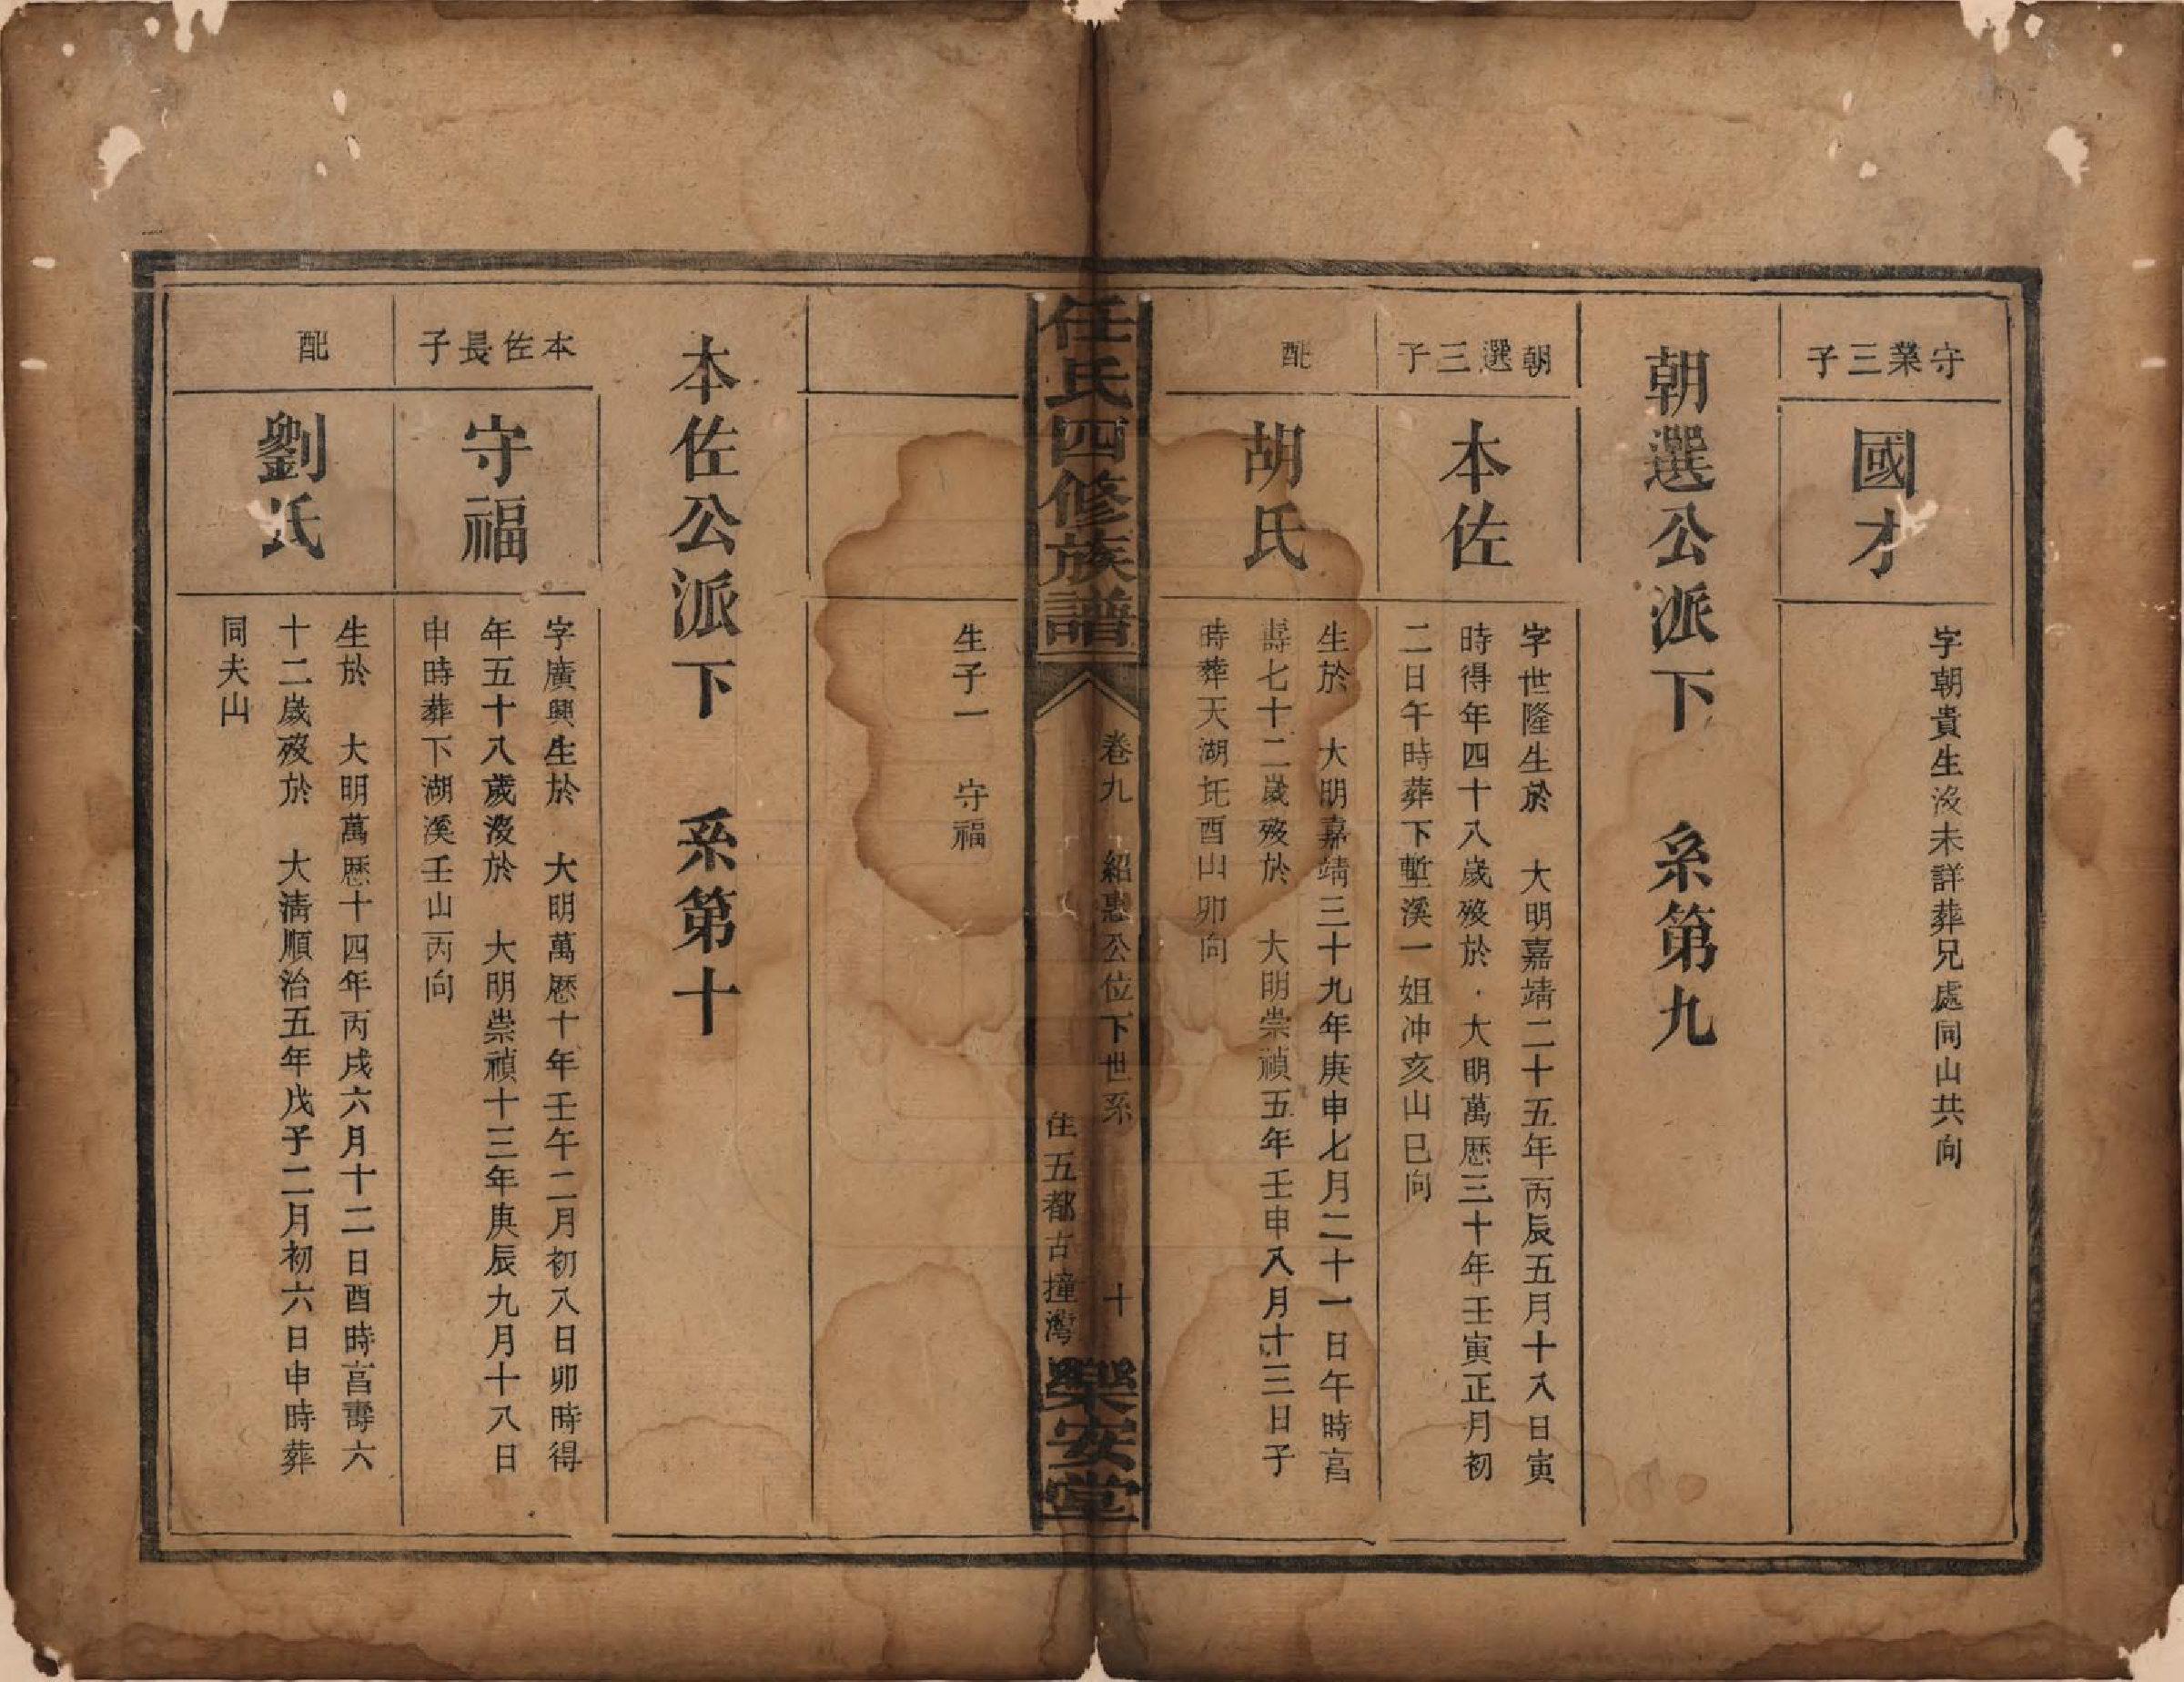 守業三子
國才
字朝貴生沒未詳葬兄處同山共向
朝選公派下　系第九
朝選三子
本佐
字世隆生於　大明嘉靖二十五年丙辰五月十八日寅
時得年四十八歲歿於　大明萬歷三十年壬寅正月初
二日午時葬下塹溪一姐冲亥山巳向
配
胡氏
生於　大明嘉靖三十九年庚申七月二十一日午時享
壽七十二歲歿於　大明崇禎五年壬申八月十三日子
時葬天湖坵酉山卯向
任氏四修族譜
卷九　紹惠公位下世系　十
住五都古撞灣
樂安堂
生子一　守福
本佐公派下　系第十
本佐長子
守福
字廣興生於　大明萬歷十年壬午二月初八日卯時得
年五十八歲沒於　大明崇禎十三年庚辰九月十八日
申時葬下湖溪壬山丙向
配
劉氏
生於　大明萬歷十四年丙戌六月十二日酉時享壽六
十二歲歿於　大淸順治五年戊子二月初六日申時葬
同夫山